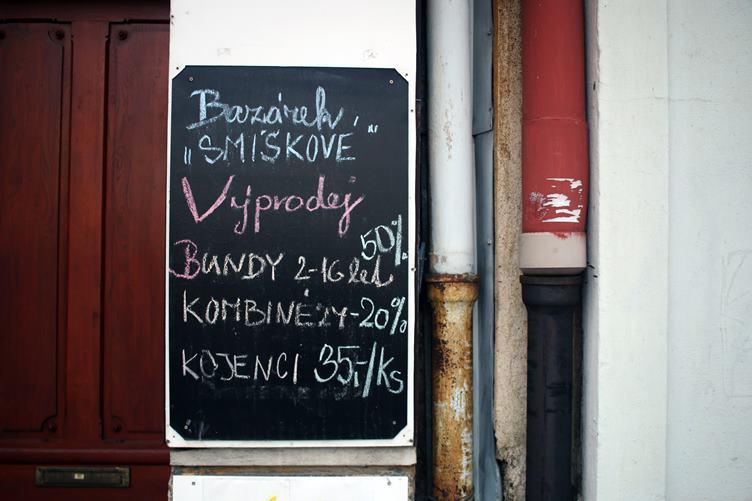 Bazárek
„SMÍŠKOVÉ"
Výprodej
BUNDY 2-16 let 50%
KOMBINÉZY-20%
KOJENCI 35,-/ks